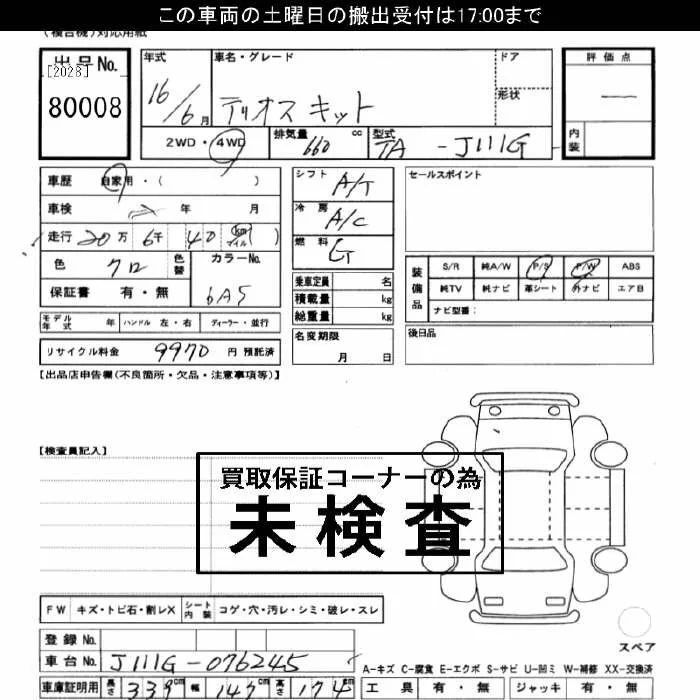 この車両の土曜日の搬出受付は17:00まで
(複合機)対応用紙
出品No.
[2028]
80008
年式
16/6月
車名・グレード
テリオスキット
ドア
形状
評価点
—
内装
2WD・4WD
排気量 660 cc
型式 TA - J111G -
車歴 自家用・( )
車検 年 月
走行 20万 6千 40 (km マイル)
色 クロ
色替
カラーNo. 6A5
保証書 有・無
シフト A/T
冷房 A/C
燃料 G
乗車定員 名
積載量 kg
総重量 kg
セールスポイント
装備品
S/R 純A/W P/S P/W ABS
純TV 純ナビ 革シート 外ナビ エアB
ナビ型番:
モデル年式 年 ハンドル 左・右 ディーラー・並行
リサイクル料金 9970 円 預託済
名変期限 月 日
後日品
【出品店申告欄(不良箇所・欠品・注意事項等)】
【検査員記入】
買取保証コーナーの為
未検査
FW キズ・トビ石・割レX シート内装 コゲ・穴・汚レ・シミ・破レ・スレ
スペア
登録No.
車台No. J111G-076245
A-キズ C-腐食 E-エクボ S-サビ U-凹ミ W-補修 XX-交換済
車庫証明用 長さ 339cm 幅 147cm 高さ 174cm
工具 有・無 ジャッキ 有・無